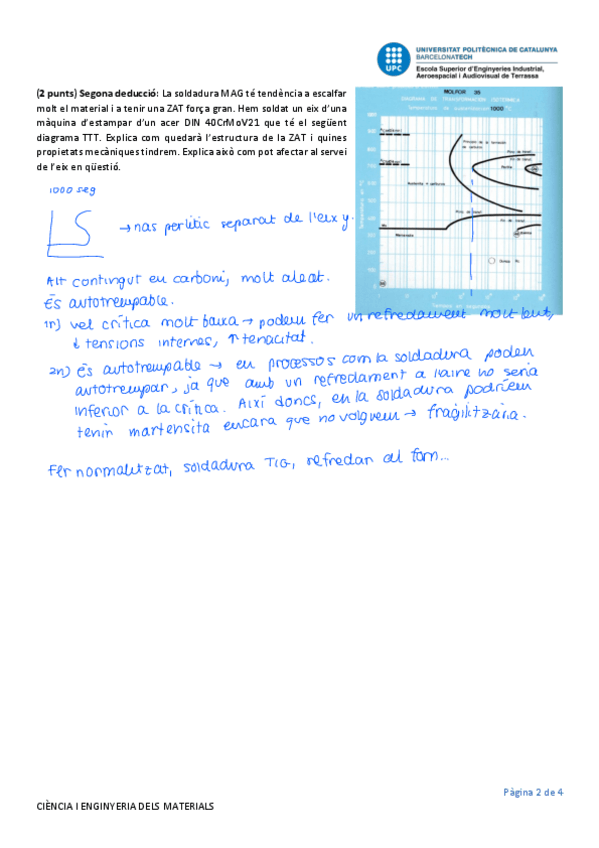 UPC
UNIVERSITAT POLITÈCNICA DE CATALUNYA
BARCELONATECH
Escola Superior d'Enginyeries Industrial,
Aeroespacial i Audiovisual de Terrassa
(2 punts) Segona deducció: La soldadura MAG té tendència a escalfar
molt el material i a tenir una ZAT força gran. Hem soldat un eix d'una
màquina d'estampar d'un acer DIN 40CrMoV21 que té el següent
diagrama TTT. Explica com quedarà l'estructura de la ZAT i quines
propietats mecàniques tindrem. Explica això com pot afectar al servei
de l'eix en qüestió.
MOLFOR 35
1000 °C
1000 seg
→ nas perlític separat de l'eix y.
Alt contingut en carboni, molt aleat.
És autotrempable.
1r) vel crítica molt baixa → podem fer un refredament molt lent,
↓ tensions internes, ↑ tenacitat.
2n) És autotrempable → en processos com la soldadura poden
autotrempar, ja que amb un refredament a l'aire no seria
inferior a la crítica. Així doncs, en la soldadura podríem
tenir martensita encara que no volguem → fragilitzaria.
Fer normalitzat, soldadura TIG, refredar al forn...
Pàgina 2 de 4
CIÈNCIA I ENGINYERIA DELS MATERIALS